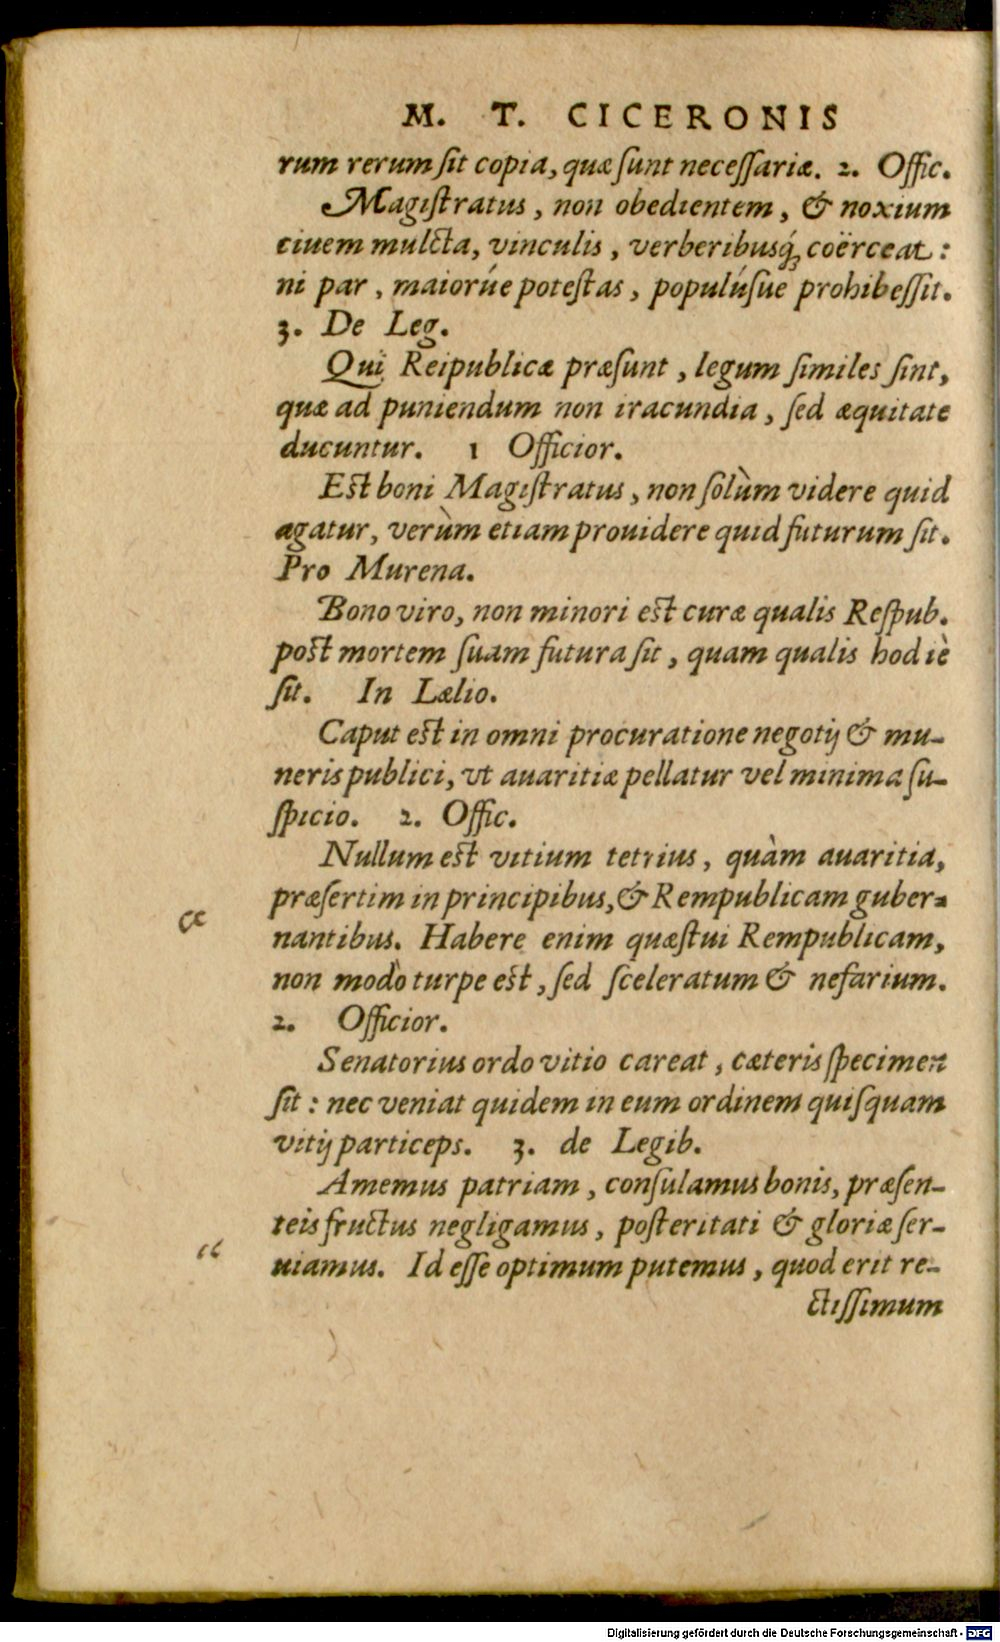 M. T. CICERONIS
rum rerum ſit copia, quæ ſunt neceſſariæ. 2. Offic.
Magiſtratus, non obedientem, & noxium
ciuem mulcta, vinculis, verberibusq́ꝫ coërceat:
ni par, maiorúe poteſtas, populúſue prohibeſſit.
3. De Leg.
Qui Reipublicæ præſunt, legum ſimiles ſint,
quæ ad puniendum non iracundia, ſed æquitate
ducuntur. 1 Officior.
Eſt boni Magiſtratus, non ſolùm videre quid
agatur, verùm etiam prouidere quid futurum ſit.
Pro Murena.
Bono viro, non minori eſt curæ qualis Reſpub.
poſt mortem ſuam futura ſit, quam qualis hodiè
ſit. In Lælio.
Caput eſt in omni procuratione negotij & mu-
neris publici, vt auaritiæ pellatur vel minima ſu-
ſpicio. 2. Offic.
Nullum eſt vitium tetrius, quàm auaritia,
præſertim in principibus, & Rempublicam guber-
nantibus. Habere enim quæſtui Rempublicam,
non modò turpe eſt, ſed ſceleratum & nefarium.
2. Officior.
Senatorius ordo vitio careat, cæteris ſpecimen
ſit: nec veniat quidem in eum ordinem quiſquam
vitij particeps. 3. de Legib.
Amemus patriam, conſulamus bonis, præſen-
teis fructus negligamus, poſteritati & gloriæ ſer-
uiamus. Id eſſe optimum putemus, quod erit re-
ctiſſimum
Digitalisierung gefördert durch die Deutsche Forschungsgemeinschaft - DFG